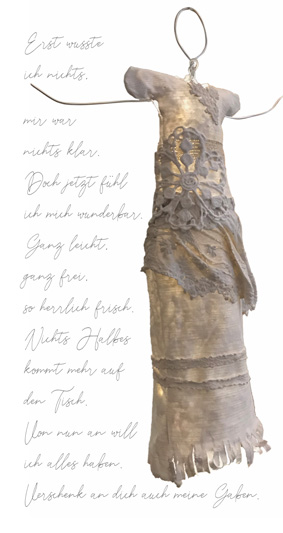 Erst wusste
ich nichts,
mir war
nichts klar.
Doch jetzt fühl
ich mich wunderbar.
Ganz leicht,
ganz frei,
so herrlich frisch.
Nichts Halbes
kommt mehr auf
den Tisch.
Von nun an will
ich alles haben.
Verschenk an dich auch meine Gaben.